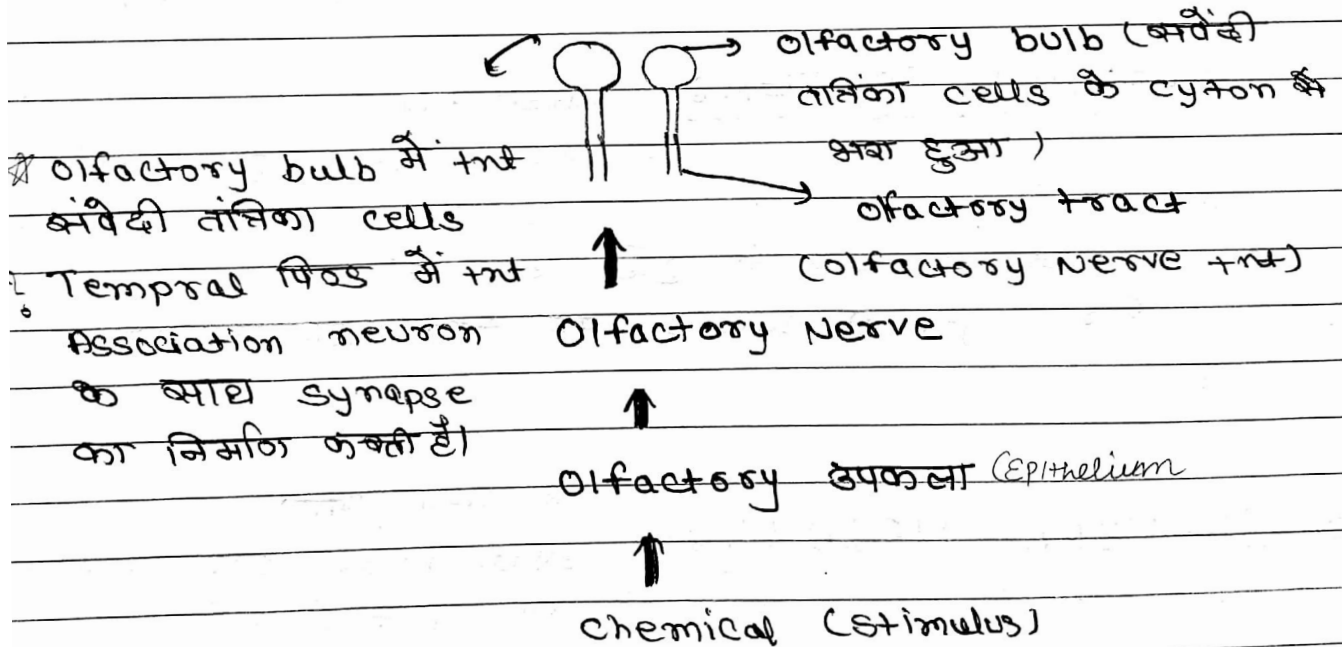 Olfactory bulb (संवेदी
तांत्रिका cells के cyton से
भरा हुआ )
Olfactory tract
(Olfactory Nerve +nt)
Olfactory bulb में +nt
संवेदी तंत्रिका cells
Tempral पिण्ड में +nt
Association neuron
के साथ synapse
का निर्माण करती है।
Olfactory Nerve
Olfactory उपकला (Epithelium
chemical (stimulus)